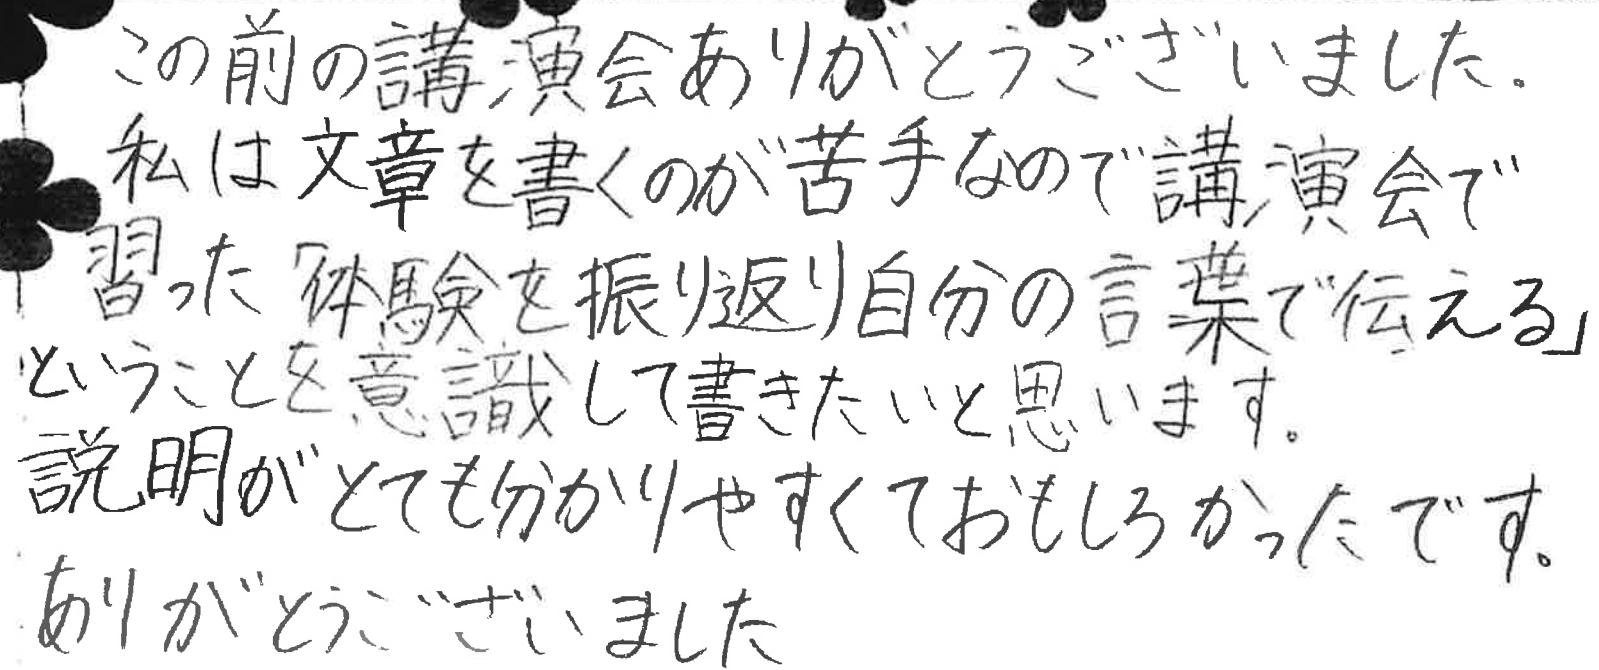 この前の講演会ありがとうございました。
私は文章を書くのが苦手なので講演会で
習った「体験を振り返り自分の言葉で伝える」
ということを意識して書きたいと思います。
説明がとても分かりやすくておもしろかったです。
ありがとうございました